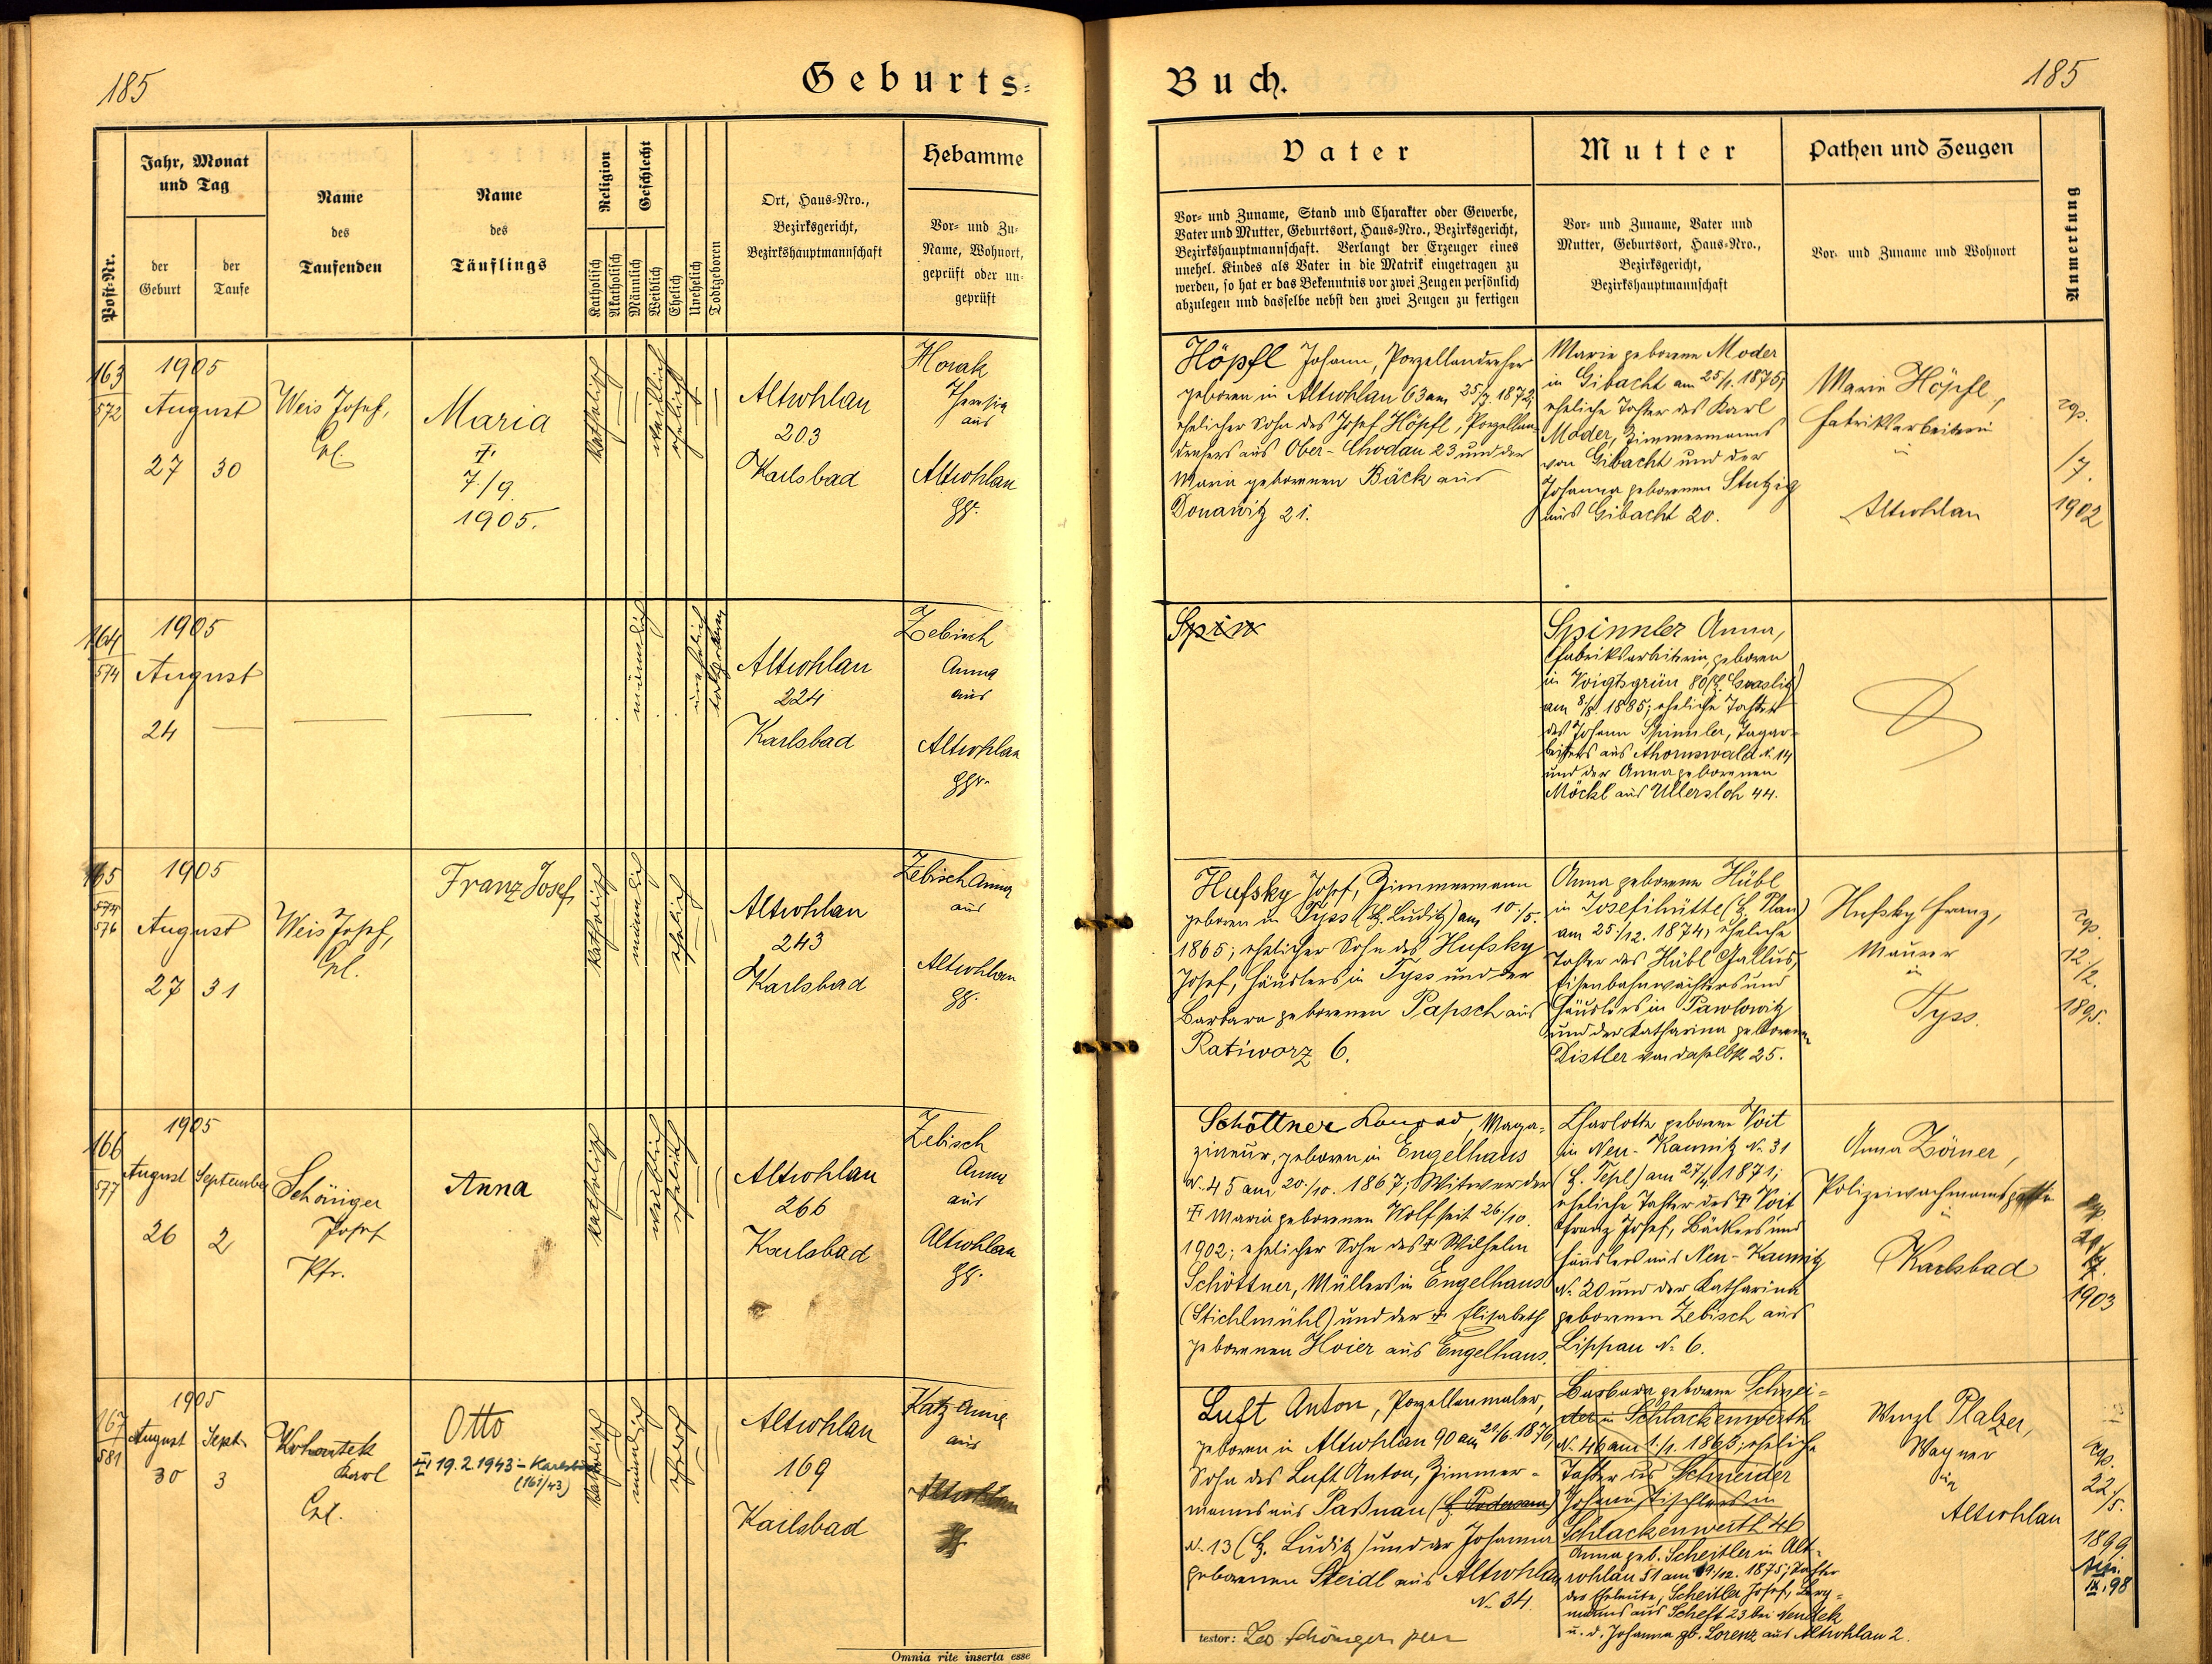 185
Geburts-
Jahr, Monat
und Tag
Hebamme
Post-Nr.
der
Geburt
der
Taufe
Name
des
Taufenden
Name
des
Täuflings
Religion
Geschlecht
Katholisch
Akatholisch
Männlich
Weiblich
Ehelich
Unehelich
Todtgeboren
Ort, Haus-Nro.,
Bezirksgericht,
Bezirkshauptmannschaft
Vor- und Zu-
Name, Wohnort,
geprüft oder un-
geprüft
163
572
1905
August
27 30
Weis Josef,
Maria
7./9.
1905.
katholisch
weiblich
ehelich
Altrohlau
203
Karlsbad
Horak
Theresia
aus
Altrohlau
164
574
1905
August
24
männlich
unehelich
todtgeboren
Altrohlau
224
Karlsbad
Zebisch
Anna
aus
Altrohlau
165
574
576
1905
August
27 31
Weis Josef,
Franz Josef
katholisch
männlich
ehelich
Altrohlau
243
Karlsbad
Zebisch Anna
aus
Altrohlau
166
577
1905
August September
26 2
Schöniger
Josef
Pfr.
Anna
katholisch
weiblich
ehelich
Altrohlau
266
Karlsbad
Zebisch
Anna
aus
Altrohlau
167
581
1905
August Sept.
30 3
Kohoutek
Karl
Otto
19.2.1943 - Karlsbad
(161/43)
katholisch
männlich
ehelich
Altrohlau
169
Karlsbad
Katz Anna
aus
Altrohlau
Omnia rite inserta esse
Buch.
185
Vater
Mutter
Pathen und Zeugen
Anmerkung
Vor- und Zuname, Stand und Charakter oder Gewerbe,
Vater und Mutter, Geburtsort, Haus-Nro., Bezirksgericht,
Bezirkshauptmannschaft. Verlangt der Erzeuger eines
unehel. Kindes als Vater in die Matrik eingetragen zu
werden, so hat er das Bekenntnis vor zwei Zeugen persönlich
abzulegen und dasselbe nebst den zwei Zeugen zu fertigen
Vor- und Zuname, Vater und
Mutter, Geburtsort, Haus-Nro.,
Bezirksgericht,
Bezirkshauptmannschaft
Vor- und Zuname und Wohnort
Höpfl Johann, Porzellandreher
geboren in Altrohlau 63 am 25/7. 1872;
ehelicher Sohn des Josef Höpfl, Porzellan
drehers aus Ober-Chodau 23 und der
Maria geborenen Bäck aus
Donawitz 21.
Marie geborene Moder
in Gibacht am 25/1. 1875;
eheliche Tochter des Karl
Moder, Zimmermanns
von Gibacht und der
Johanna geborenen Stutzig
aus Gibacht 20.
Marie Höpfl,
Fabriksarbeiterin
in
Altrohlau
cop.
1902
Spin
Spinnler Anna,
Fabriksarbeiterin, geboren
in Voigtsgrün 80 (B. Graslitz)
am 8/8 1885; eheliche Tochter
des Johann Spinnler, Tagar-
beiters aus Ahornswald N. 14
und der Anna geborenen
Möckl aus Ullersloh 44.
Hufsky Josef, Zimmermann
geboren in Tyss (B. Luditz) am 10./5.
1865; ehelicher Sohn des Hufsky
Josef, Häuslers in Tyss und der
Barbara geborenen Papsch aus
Ratiworz 6.
Anna geborene Hübl
in Josefihütte (B. Plan)
am 25./12. 1874; eheliche
Tochter des Hübl Gallus,
Eisenbahnwächters und
Häuslers in Pawlowitz
und der Katharina geborenen
Distler von daselbst 25.
Hufsky Franz,
Maurer
in
Tyss.
cop.
12./2.
1895.
Schöttner Konrad, Maga-
zineur, geboren in Engelhaus
N. 45 am 20./10. 1867; Witwer der
Maria geborenen Wolf seit 26./10.
1902; ehelicher Sohn des Wilhelm
Schöttner, Müllers in Engelhaus
(Stichlmühl) und der Elisabeth
geborenen Hoier aus Engelhaus.
Charlotte geborene Voit
in Neu-Kaunitz N. 31
(B. Tepl) am 27/4 1871;
eheliche Tochter des Voit
Franz Josef, Bäckers und
Häuslers aus Neu-Kaunitz
N. 20 und der Katharina
geborenen Zebisch aus
Lippau N. 6.
Anna Zörner,
Polizeiwachmannsgattin
in
Karlsbad
1903
Luft Anton, Porzellanmaler,
geboren in Altrohlau 90 am 21/6. 1876,
Sohn des Luft Anton, Zimmer-
manns aus Paßnau (B. Podersam)
N. 13 (B. Luditz) und der Johanna
geborenen Steidl aus Altrohlau
N. 34.
Barbara geborene Schnei-
der in Schlackenwerth
N. 46 am 1./1. 1863; eheliche
Tochter des Schneider
Johann, Tischlers in
Schlackenwerth 46
Anna geb. Scheitler in Alt-
rohlau 51 am 19./12. 1875; Tochter
der Eheleute, Scheitler Josef, Berg-
manns aus Scheft 23 bei Neudek
u. d. Johanna gb. Lorenz aus Altrohlau 2.
Wenzl Platzer,
Wagner
in
Altrohlau
cop.
22./5.
1899
IX. 98
testor: Leo Schöniger